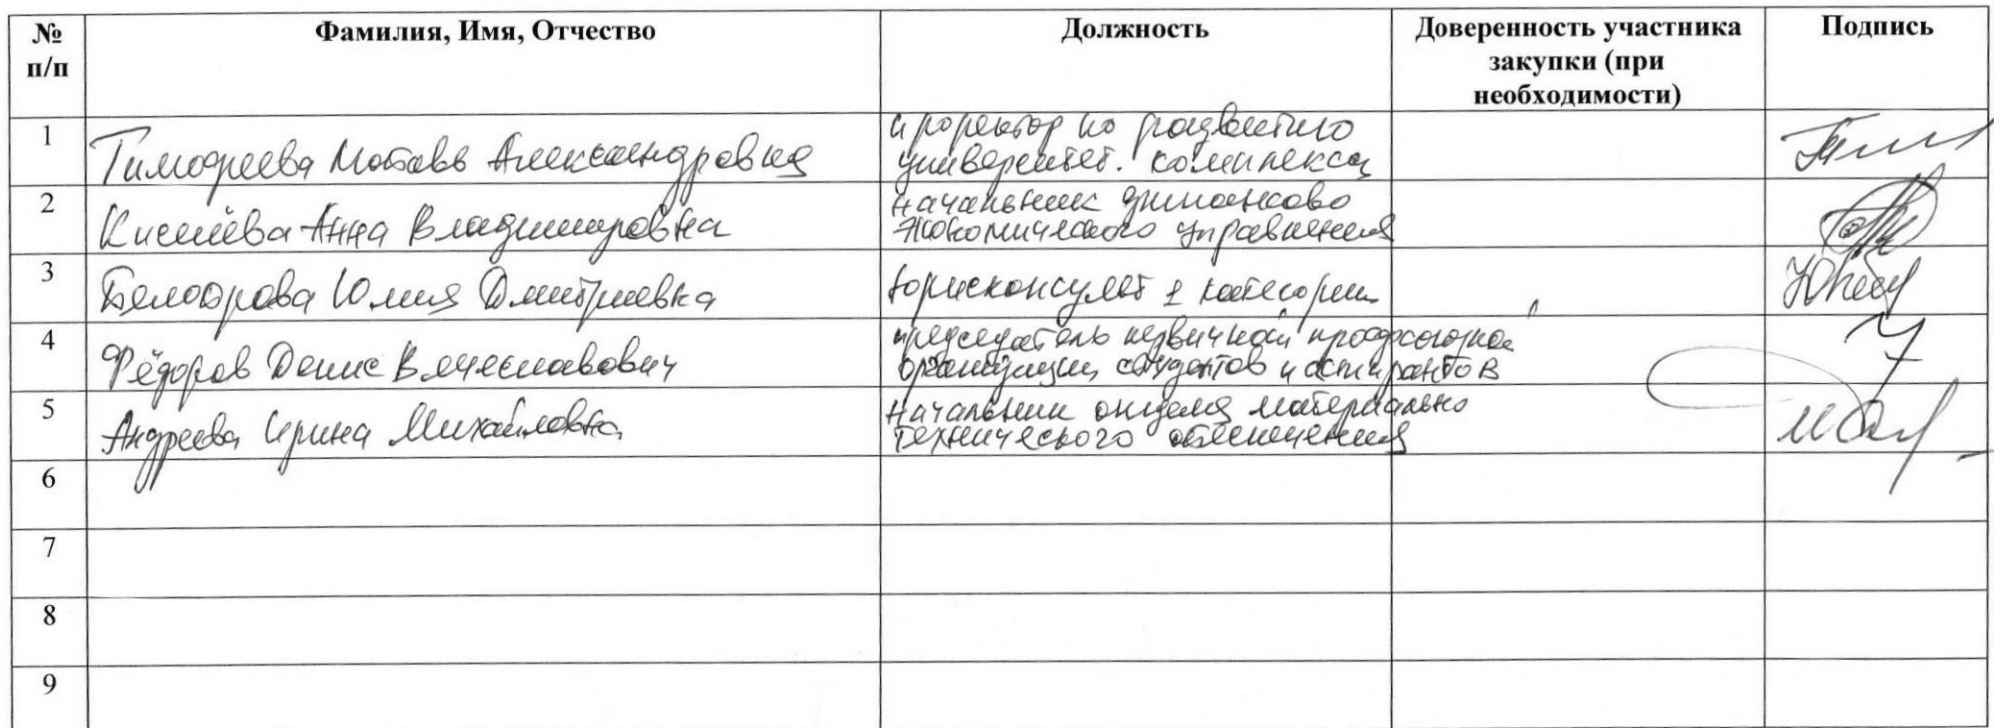 № п/п
Фамилия, Имя, Отчество
Должность
Доверенность участника закупки (при необходимости)
Подпись
1
Тимофеева Александровна
проректор по развитию
университет. комплекса
2
Киселёва Анна Владимировна
начальник финансово
экономического управления
3
Юлия Дмитриевна
юрисконсульт 1 категории
4
Фёдоров Денис Вячеславович
председатель первичной профсоюзной
организации студентов и аспирантов
5
Андреева Ирина Михайловна
начальник отдела материально
технического обеспечения
6
7
8
9